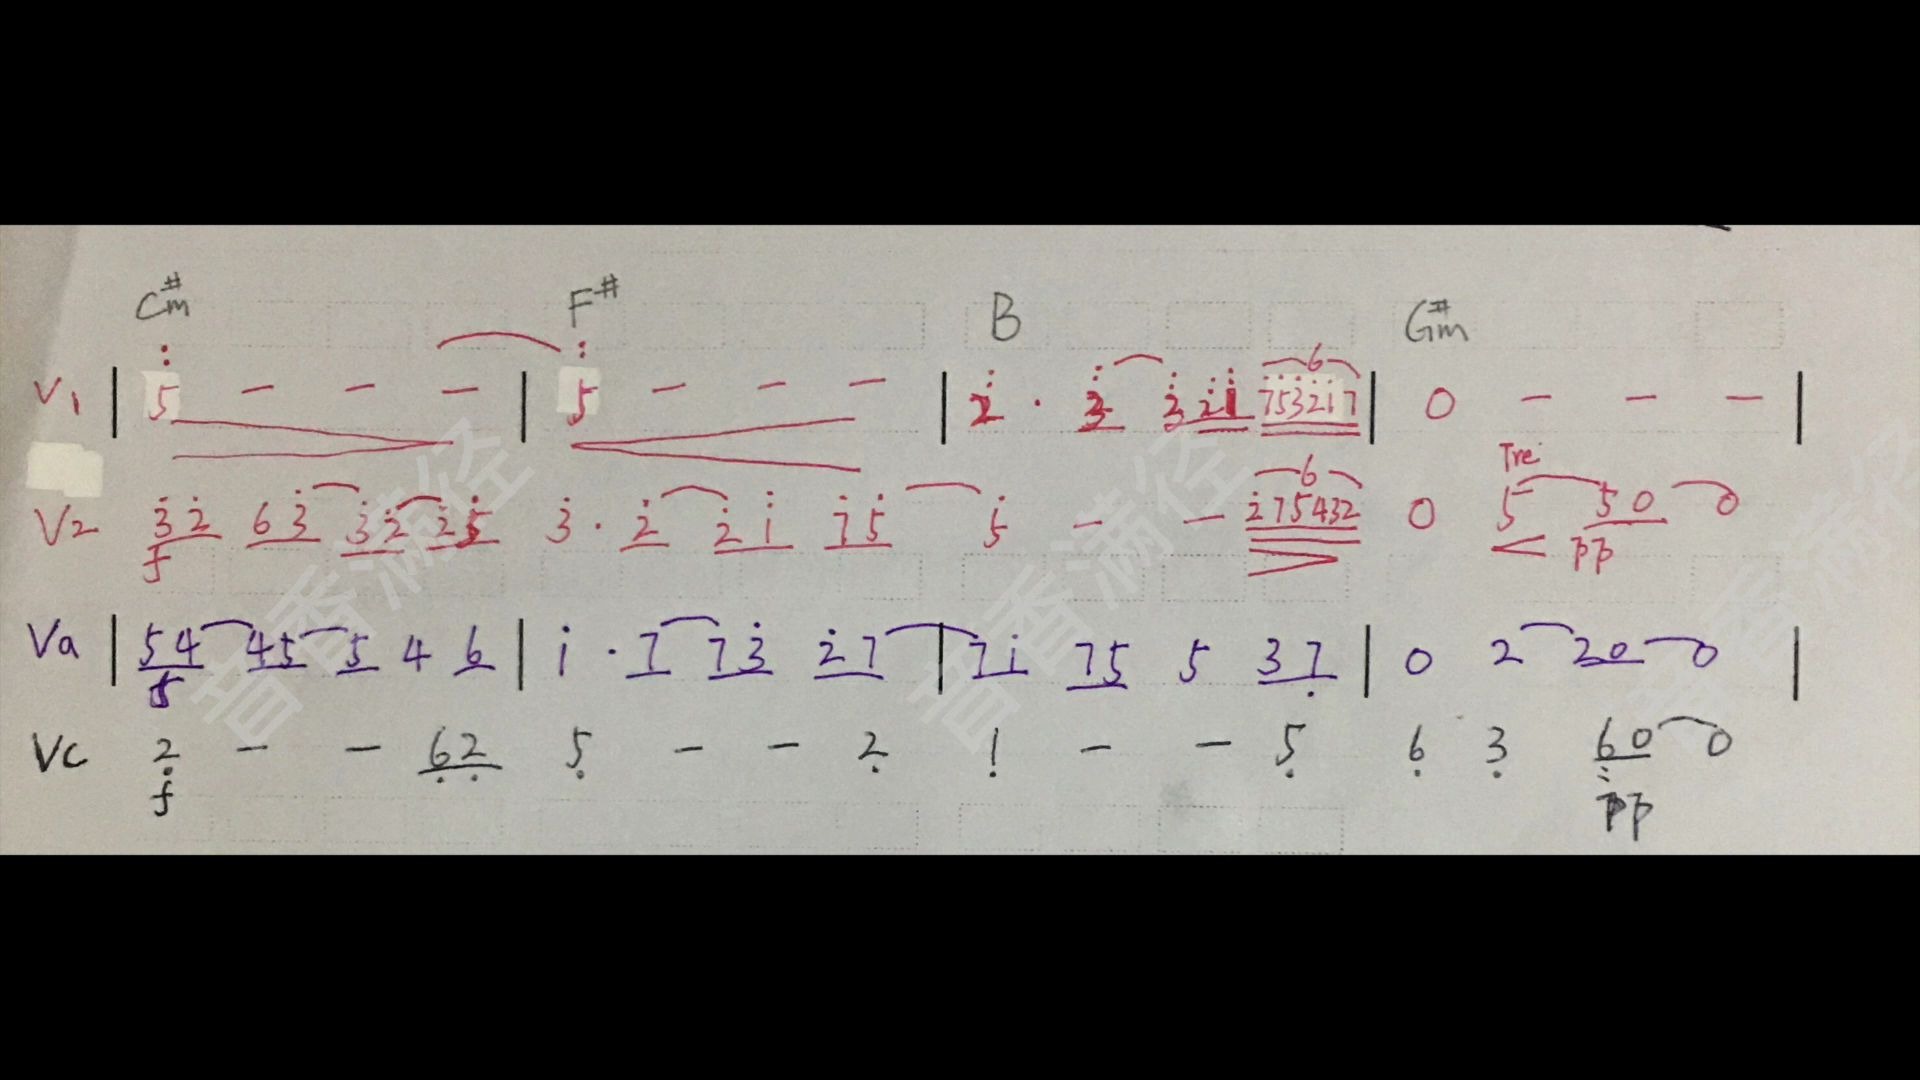 C#m F# B G#m
V1 | 5 - - - | 5 - - - | 2̇ · 3 3 2 1 753217 | 0 - - - |
6
V2 3̇2̇ 63̇ 3̇2̇ 2̇5̇ 3̇ · 2̇ 2̇1̇ 7̇5̇ 5̇ - - 2̇75432 0 5 50 0
6 Tre
f < pp
Va | 54 45 5 4 6 | 1̇ · 7 73̇ 2̇7 | 71̇ 75 5 37̣ | 0 2 20 0 |
f
Vc 2̣ - - 6̣2̣ 5̣ - - 2̣ 1̣ - - 5̣ 6̣ 3̣ 60 0
f pp
音香满径 音香满径 音香满径